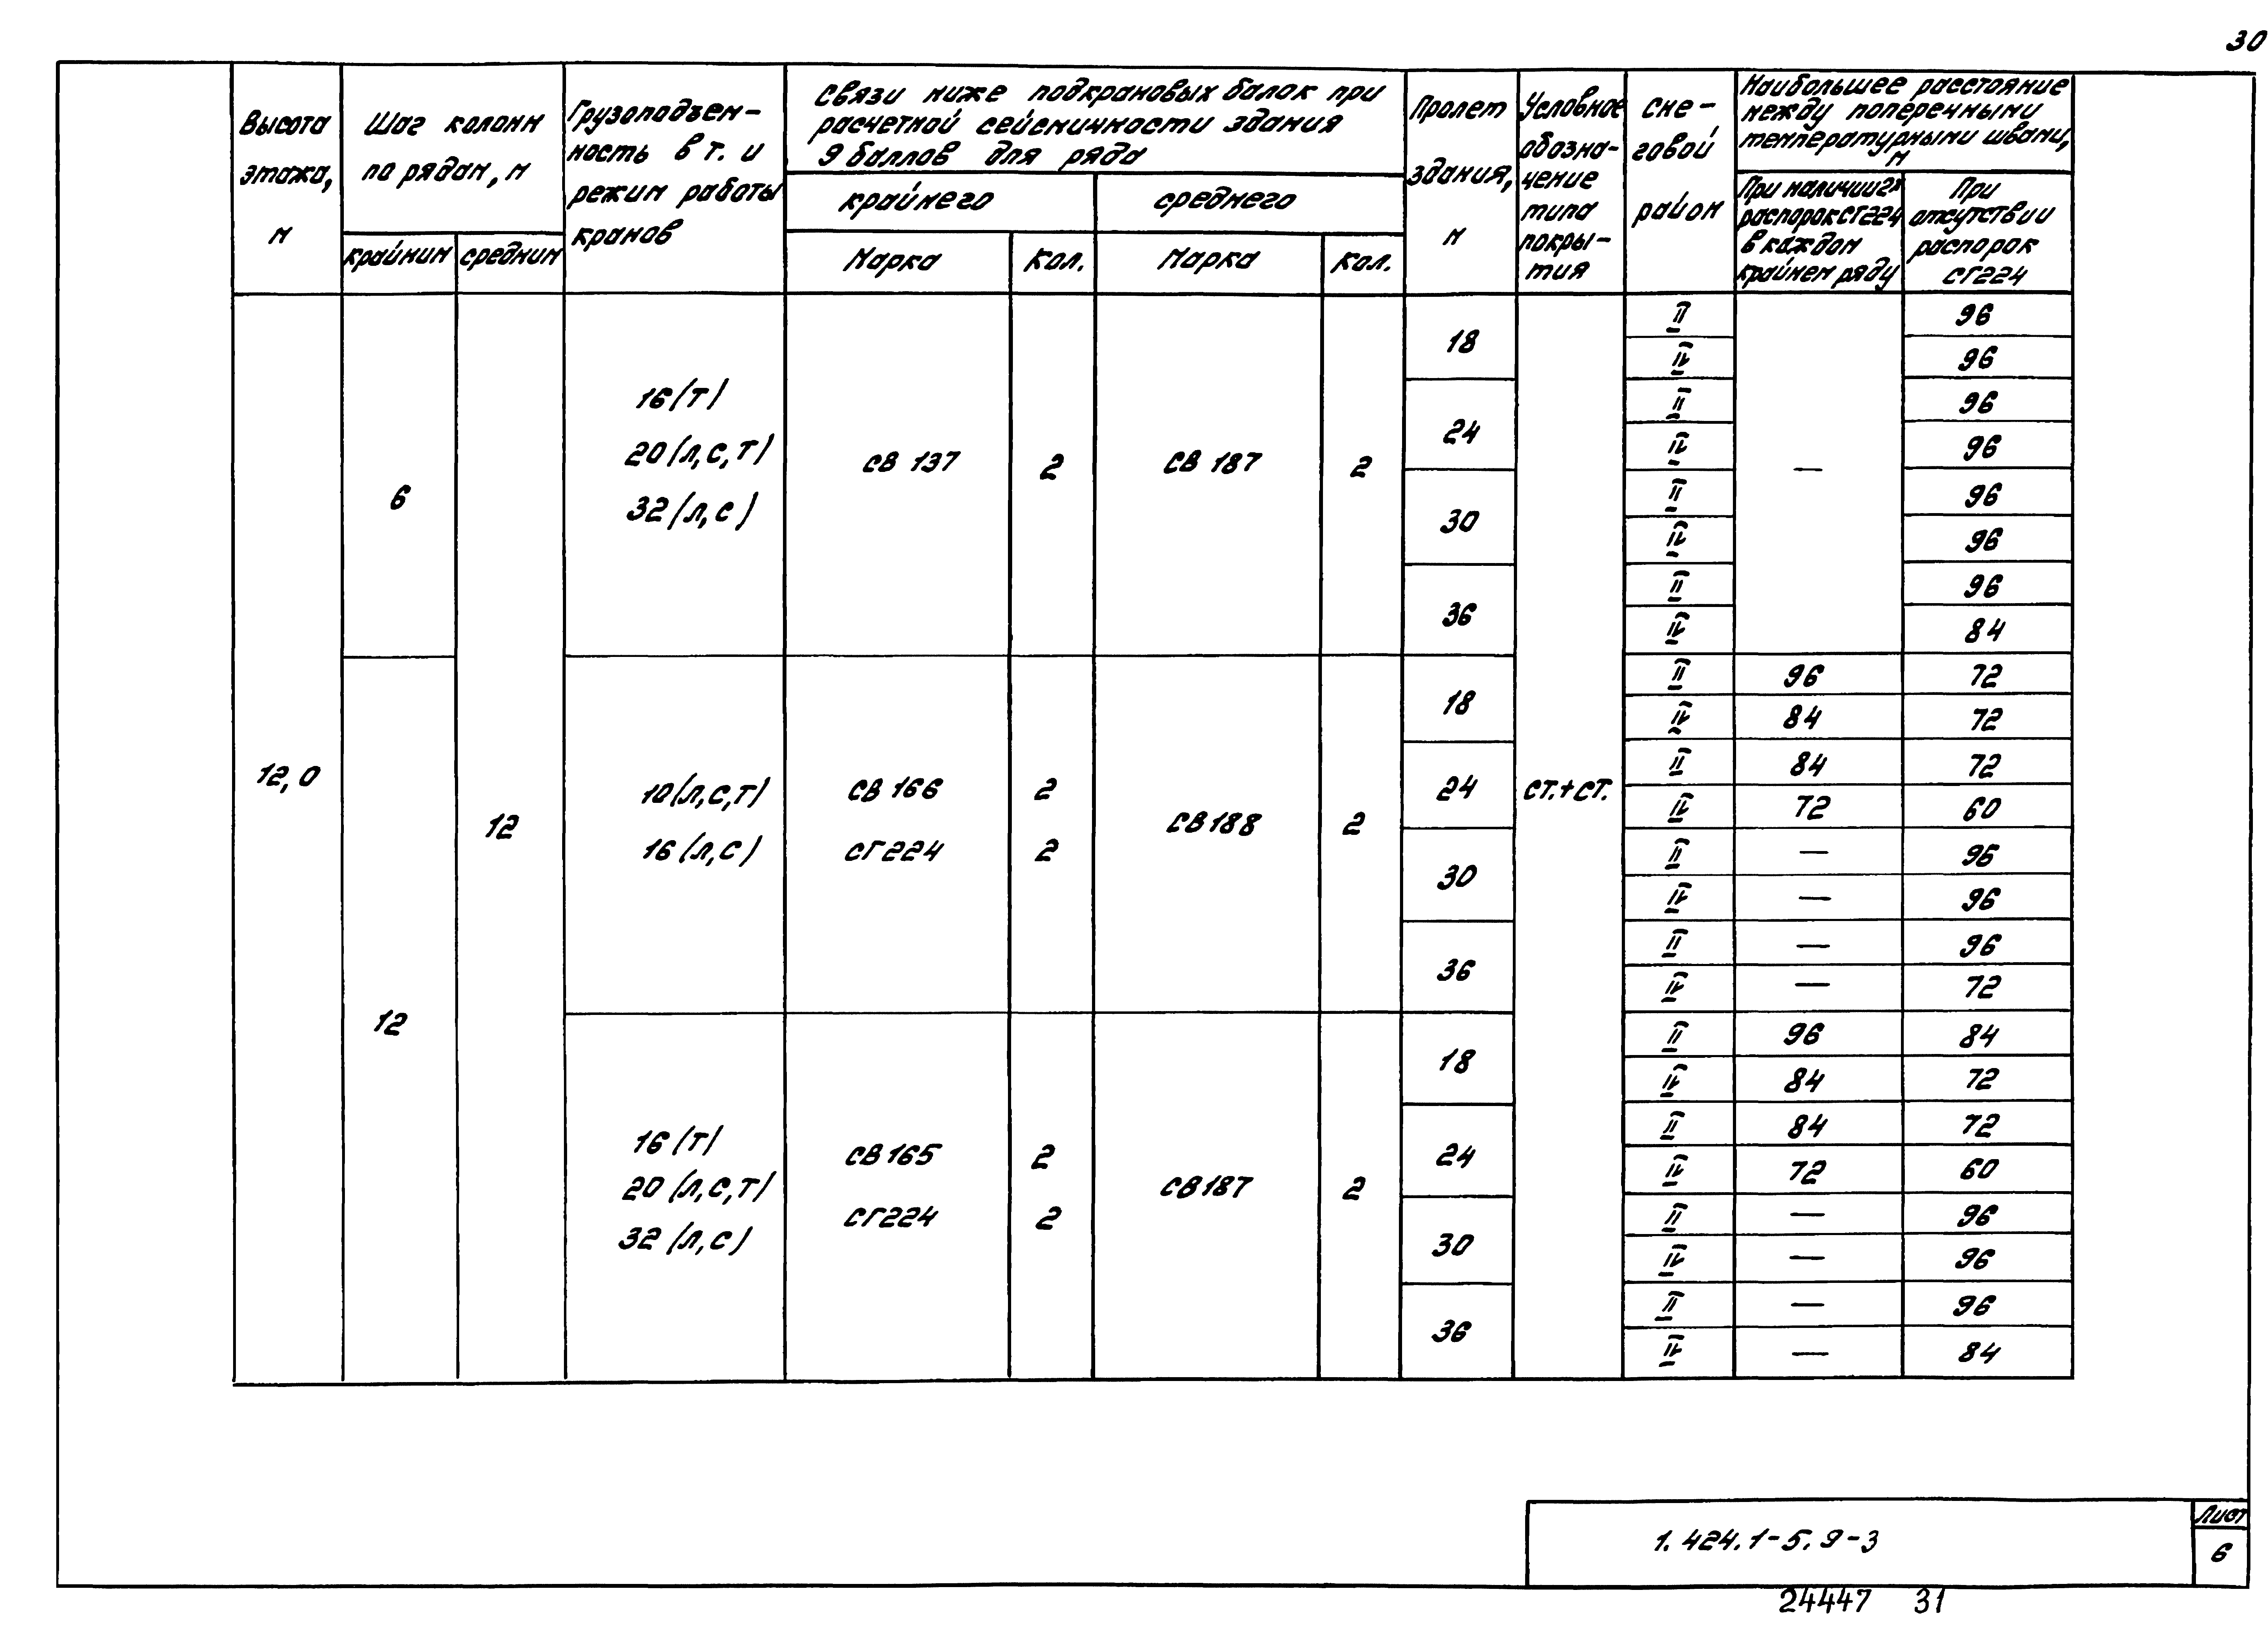 30
Высота этажа, м
Шаг колонн по рядам, м
крайним
средним
Грузоподъем-
ность в т. и
режим работы
кранов
Связи ниже подкрановых балок при
расчетной сейсмичности здания
9 баллов для ряда
крайнего
среднего
Марка
Кол.
Марка
Кол.
Пролет здания, м
Условное
обозна-
чение
типа
покры-
тия
Сне-
говой
район
Наибольшее расстояние
между поперечными
температурными швами,
м
При наличии 2х
распорок СГ224
в каждом
крайнем ряду
При
отсутствии
распорок
СГ224
12,0
6
12
16 (т)
20 (л,с,т)
32 (л,с)
СВ 137
2
СВ 187
2
ст.+ст.
—
18
II
96
IV
96
24
II
96
IV
96
30
II
96
IV
96
36
II
96
IV
84
12
10 (л,с,т)
16 (л,с)
СВ 166
2
СГ224
2
СВ 188
2
18
II
96
72
IV
84
72
24
II
84
72
IV
72
60
30
II
—
96
IV
—
96
36
II
—
96
IV
—
72
16 (т)
20 (л,с,т)
32 (л,с)
СВ 165
2
СГ224
2
СВ 187
2
18
II
96
84
IV
84
72
24
II
84
72
IV
72
60
30
II
—
96
IV
—
96
36
II
—
96
IV
—
84
1.424.1-5.9-3
Лист
6
24447 31